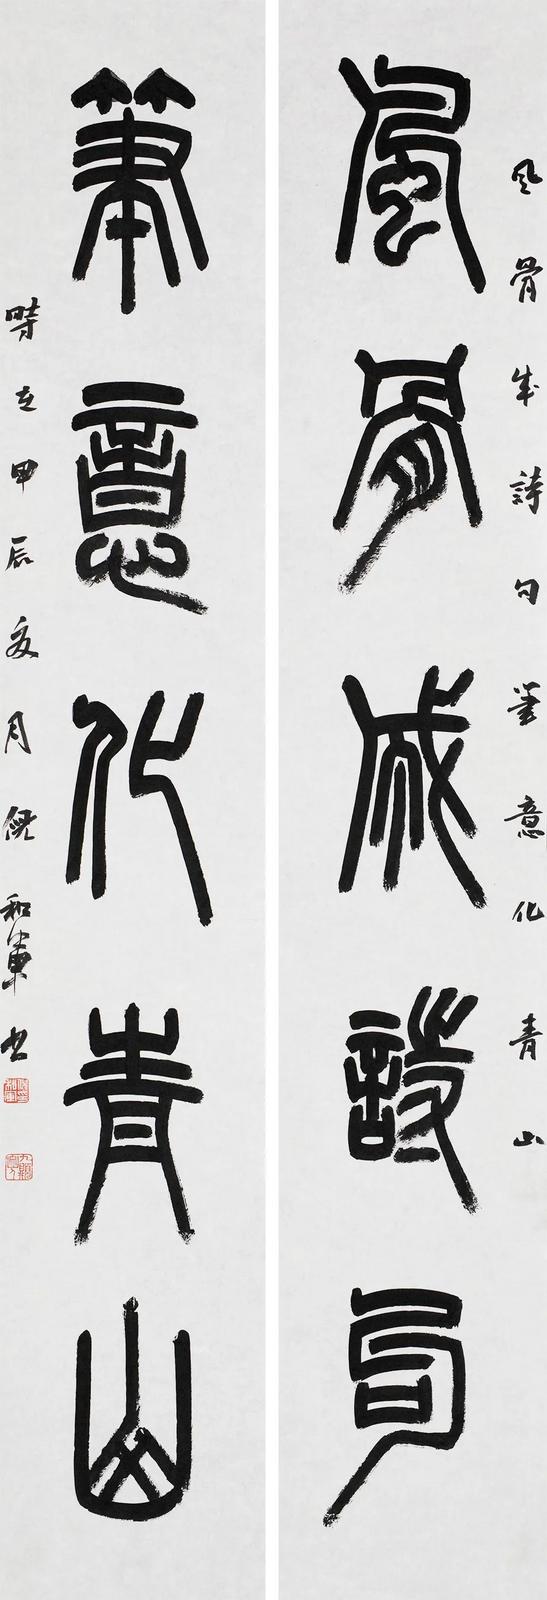 風骨成詩句筆意化青山
風骨成詩句
筆意化青山
時在甲辰夏月倪和軍書